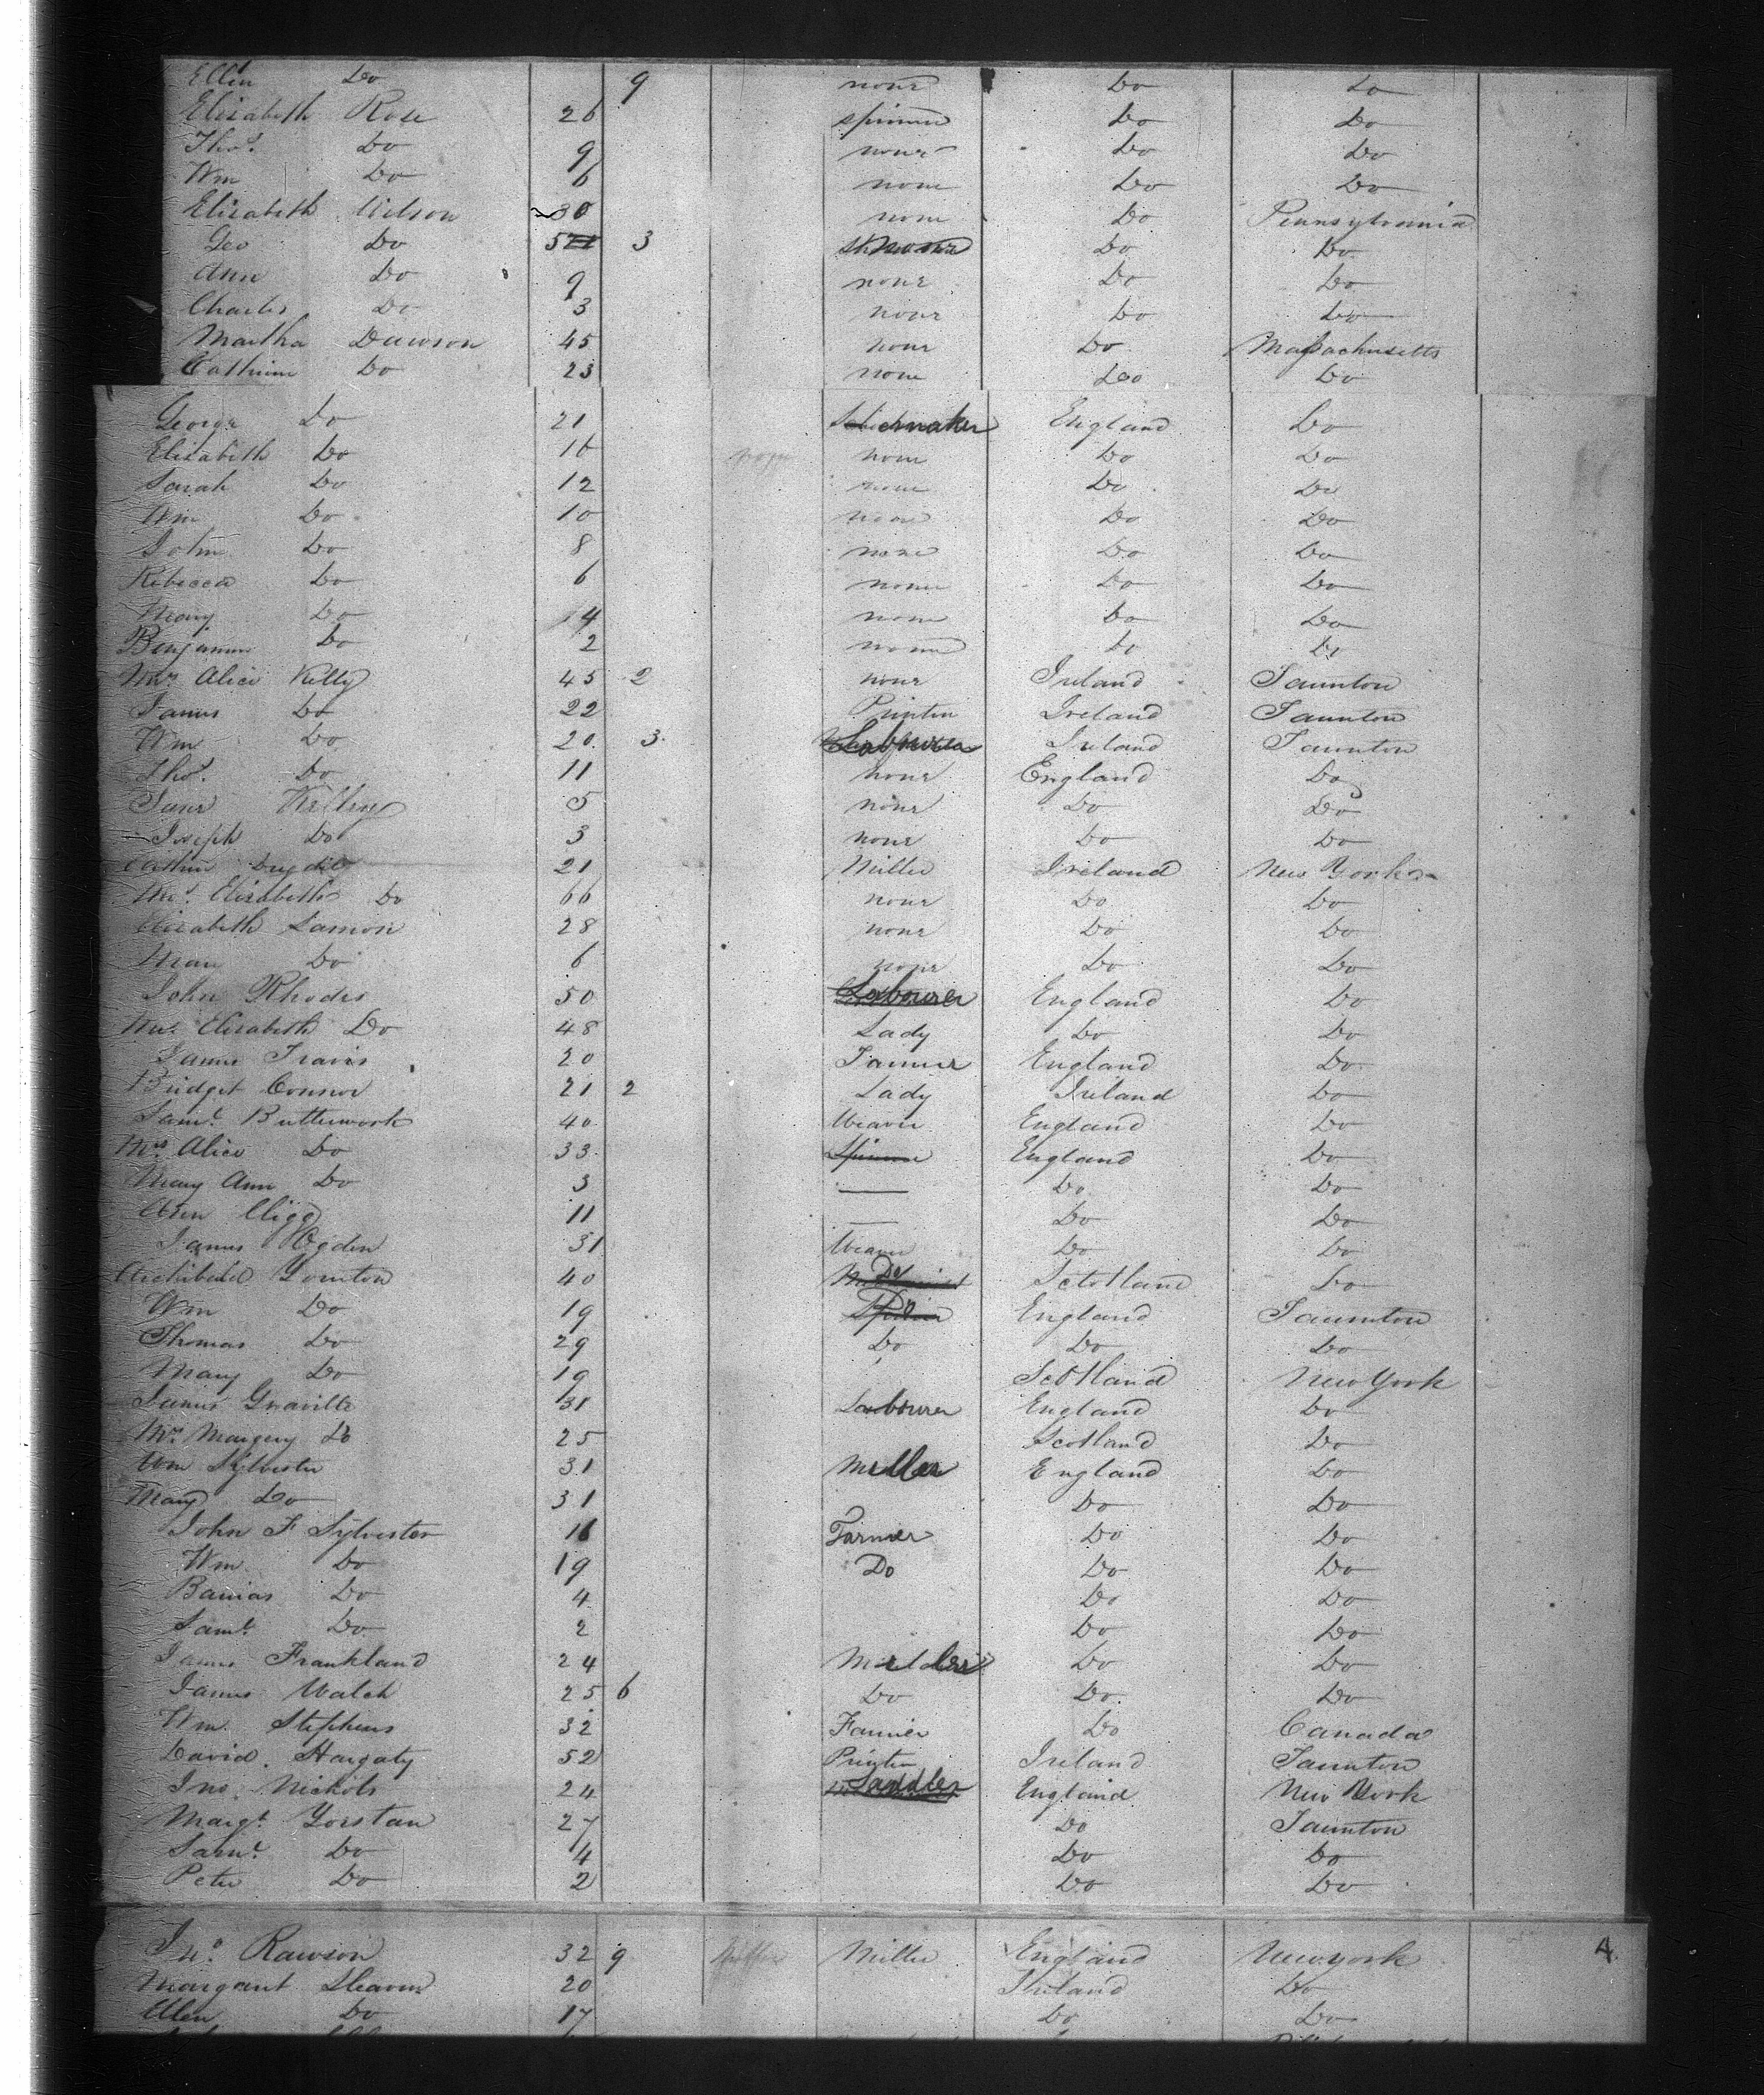 Ellen Do 9 none Do Do
Elizabeth Rose 26 spinner Do Do
Thos. Do 9 none Do Do
Wm Do 6 none Do Do
Elizabeth Wilson 30 none Do Pennsylvania
Geo Do 5 3 none Do Do
Ann Do 9 none Do Do
Charles Do 3 none Do Do
Martha Dawson 45 none Do Massachusetts
Cathrine Do 23 none Do Do
George Do 21 Shoemaker England Do
Elizabeth Do 16 none Do Do
Sarah Do 12 none Do Do
Wm Do 10 none Do Do
John Do 8 none Do Do
Rebecca Do 6 none Do Do
Mary Do 14 none Do Do
Benjamin Do 2 none Do Do
Mrs Alice Kelly 45 2 none Ireland Taunton
James Do 22 Printer Ireland Taunton
Wm Do 20 3 Labourer Ireland Taunton
Thos. Do 11 none England Do
Jane Kelley 5 none Do Do
Joseph Do 3 none Do Do
21 Miller Ireland New York
Mrs. Elizabeth Do 66 none Do Do
Elizabeth Lamon 28 none Do Do
Mary Do 6 none Do Do
John Rhodes 50 Labourer England Do
Mrs. Elizabeth Do 48 Lady Do Do
James Travis 20 England Do
Bridget Connor 21 2 Lady Ireland Do
Saml. Butterwork 40 Weaver England Do
Mrs. Alice Do 33 Spinner England Do
Mary Ann Do 3 — Do Do
Ann Cligg 11 — Do Do
James Ogden 31 Weaver Do Do
Archibald 40 Do Sctotland Do
Wm Do 19 Do England Taunton
Thomas Do 29 Do Do Do
Mary Do 19 Scotland New York
James Graville 31 Labourer England Do
Mrs Margery Do 25 Scotland Do
Wm Sylvester 31 Miller England Do
Mary Do 31 Do Do
John F Sylvester 16 Farmer Do Do
Wm. Do 19 Do Do Do
Do 4 Do Do
Saml. Do 2 Do Do
James Frankland 24 Do Do
James Walch 25 6 Do Do Do
Wm. Stephens 32 Farmer Do Canada
David. Hargaty 52 Printer Ireland Taunton
Jno. Nichols 24 Saddler England New York
Margt. Yorstan 27 Do Taunton
Saml. Do 4 Do Do
Peter Do 2 Do Do
Jno. Rawson 32 9 Miller England New york 4.
Margaret 20 Ireland Do
Ellen Do 17 Do Do